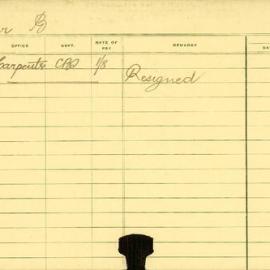 r B
OFFICE DEPT. RATE OF PAY REMARKS DA
Carpenter CBQ 1/8 Resigned